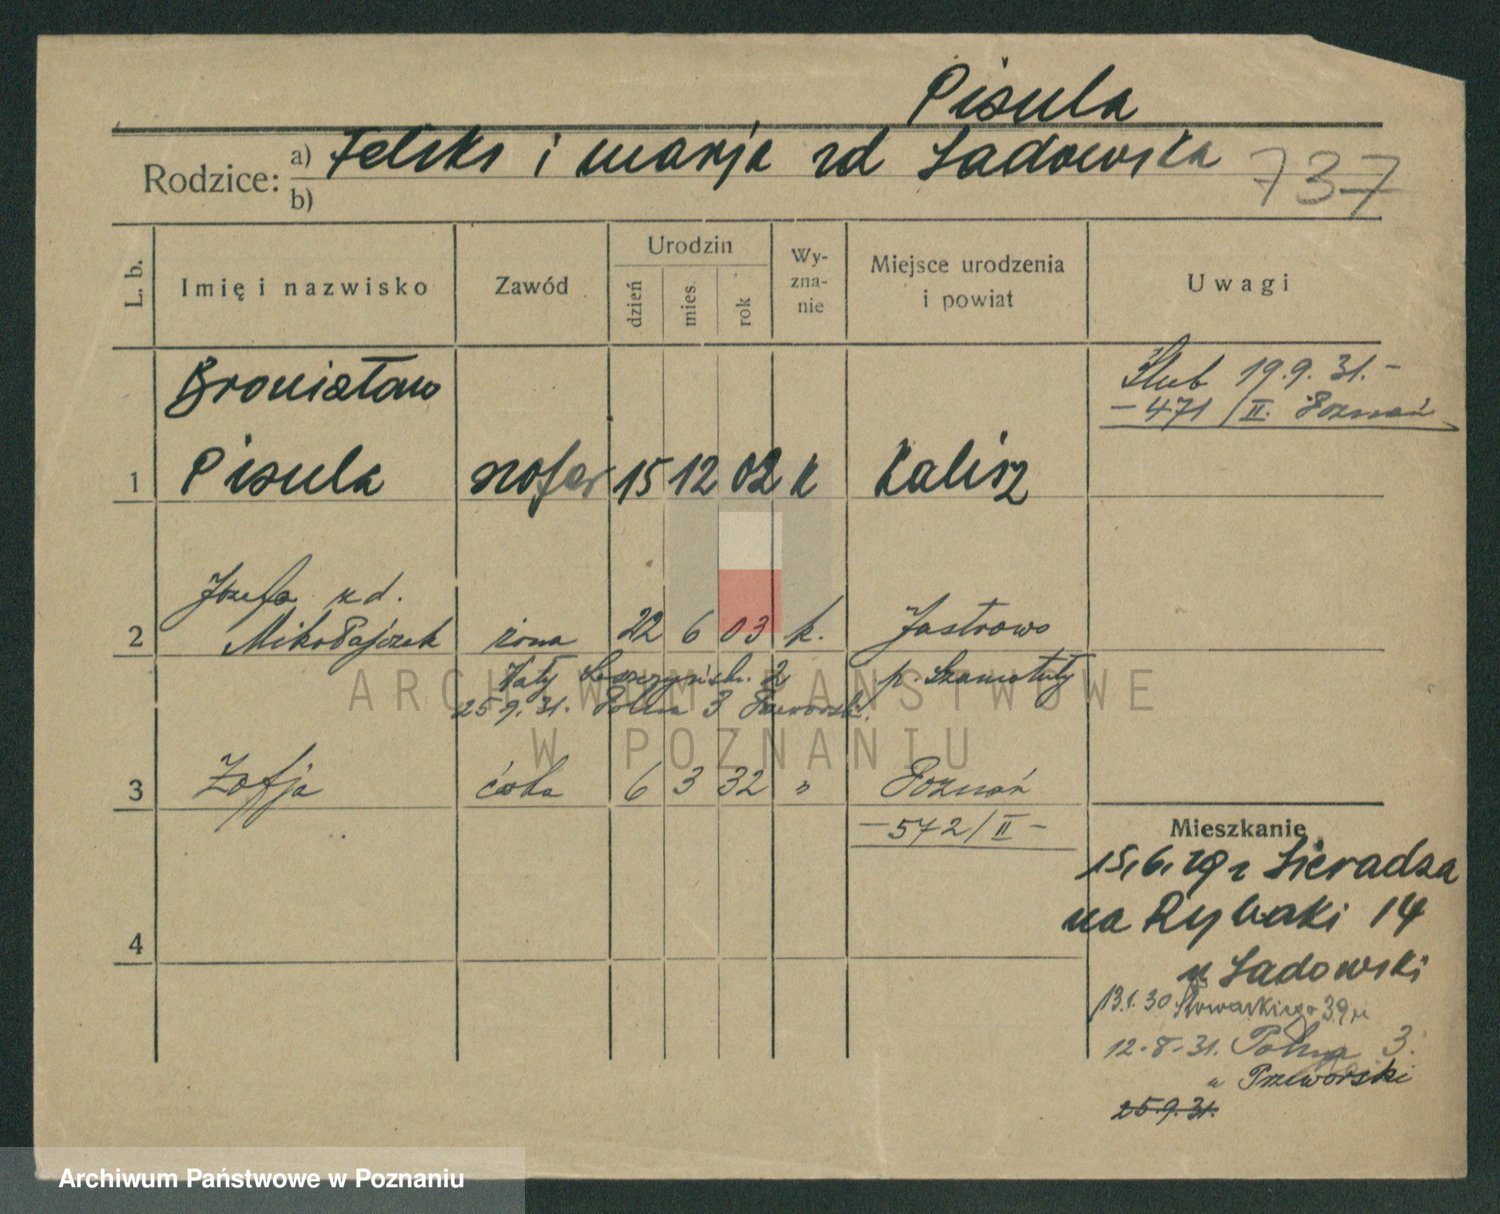 Pisula
Rodzice: a) Feliks i Marja zd Sadowska 737
b)
L. b. Imię i nazwisko Zawód Urodzin dzień mies. rok Wy-zna-nie Miejsce urodzenia i powiat Uwagi
Ślub 19.9.31.-
-471/II. Poznań
Bronisław
1 Pisula szofer 15 12 02 k Kalisz
Józefa zd.
2 Mikołajczak żona 22 6 03 k. Jastrowo
Wały 2 p. Szamotuły
25.9.31. Polna 3 Przeworski
3 Zofja córka 6 3 32 " Poznań
-572/II-
Mieszkanie
15.6.29 z Sieradza
na Rybaki 14
u Sadowski
4
13.1.30 Słowackiego 39
12.8.31. Polna 3.
u Przeworski
25.9.31.
ARCHIWUM PAŃSTWOWE
W POZNANIU
Archiwum Państwowe w Poznaniu